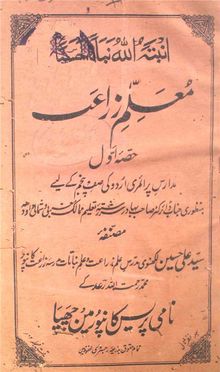 انبتہ اللہ نباتا حسنا
معلّم زراعت
حصّہ اوّل
مدارس پرائمری اردو کی صنف پنجم کے لیے
بمنظوری جناب ڈائرکٹر صاحب بہادر سررشتہ تعلیم ممالک مغربی و شمالی و اودھ
مصنّفہ
سید علی حسین لکھنوی مدرس علم زراعت و علم نباتات مدرسہ زراعت کانپور
محمد رحمت اللہ رعد کے
نامی پریس کانپور مین چھپا